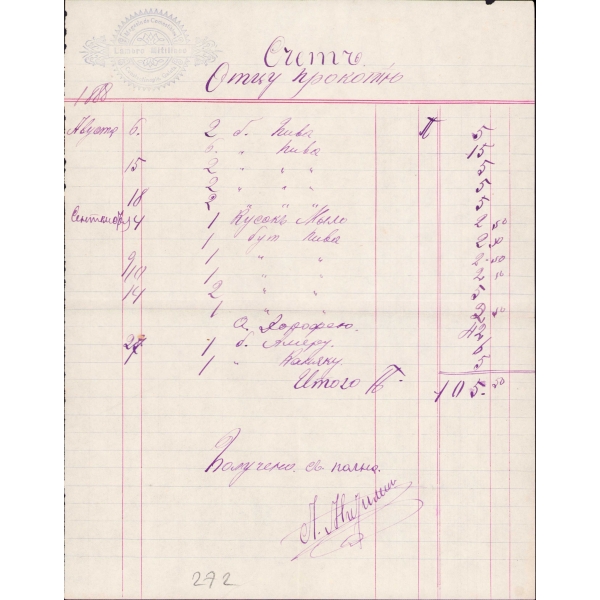 Счетъ.
Отцу Прокопію
1888
Августа 6. 2 б. Пива П 5
6. " Пива 15
15 2 " " 5
2 " " 5
18 2 " " 5
4 1 Кусокъ Мыло 2 50
1 бут Пива 2 50
9 1 " " 2.50
10 1 " " 2 50
14 2 " " 5
1 " " 2 50
О. Дорофею. 42
27 1 б. 6
1 " Каняку. 5
Итого П. 105.50
Получено. сполна.
272